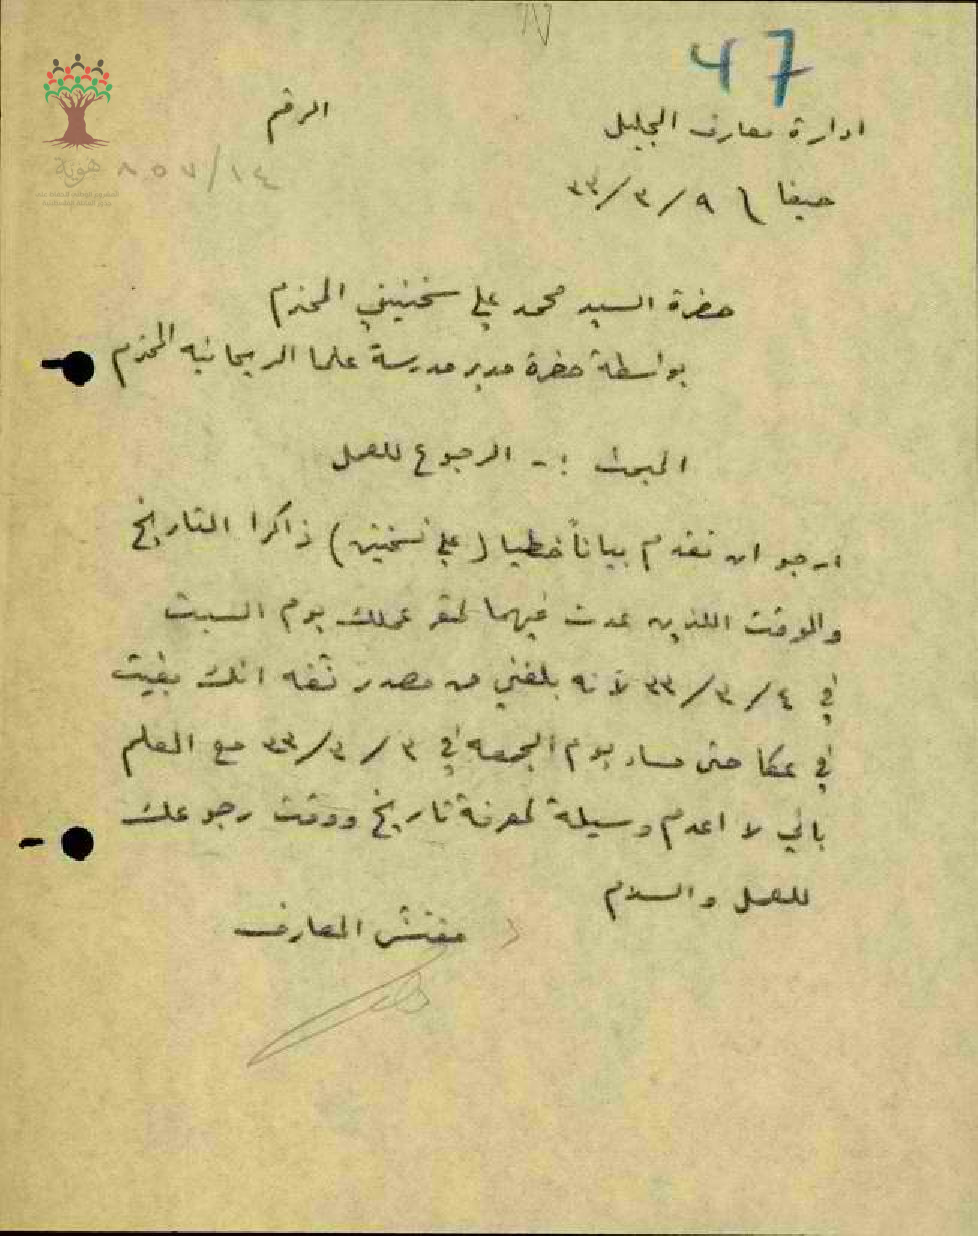 47
ادارة معارف الجليل
الرقم
٨٥٧/١٤
حيفا ٩/٣/٣٣
هوية
حضرة السيد محمد علي سخنيني المحترم
بواسطة حضرة مدير مدرسة علما الريحانيه المحترم
المبحث :- الرجوع للعمل
ارجو ان تقدم بياناً خطيا (على نسختين) ذاكرا التاريخ
والوقت اللذين عدت فيهما لمقر عملك يوم السبت
في ٤/٣/٣٣ لانه بلغني من مصدر ثقه انك بقيت
في عكا حتى مساء يوم الجمعه في ٣/٣/٣٣ مع العلم
باني لا اعدم وسيلة لمعرفة تاريخ ووقت رجوعك
للعمل والسلام
مفتش المعارف